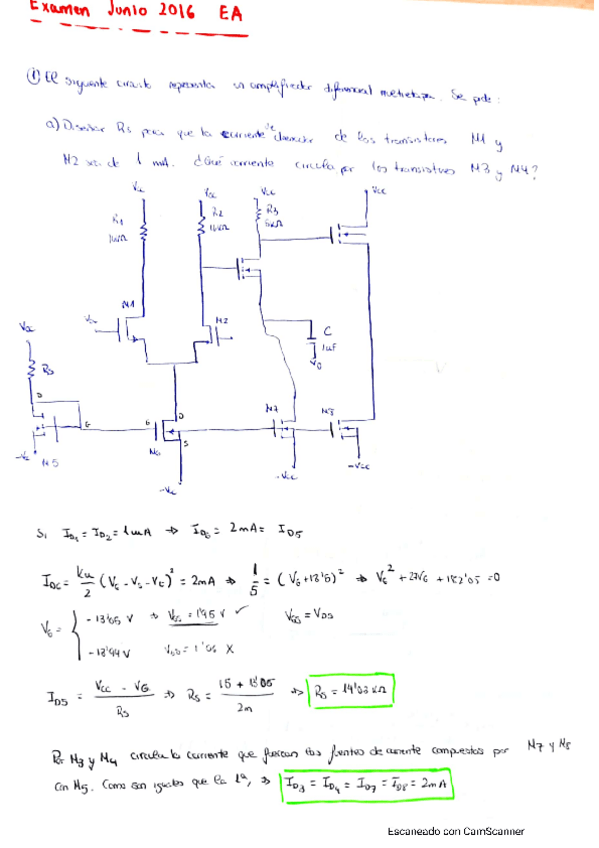 Examen Junio 2016 EA
① El siguiente circuito representa un amplificador diferencial multietapa. Se pide:
a) Diseñar Rs para que la corriente de drenador de los transistores M1 y
M2 sea de 1 mA. ¿Qué corriente circula por los transistores M3 y M4?
Vcc
Vcc
Vcc
Vcc
R1
1kΩ
R2
1kΩ
R3
M1
M2
C
1uF
Vcc
D
G
G
D
S
M5
M6
M7
M8
-Vcc
-Vcc
-Vcc
Si ID1 = ID2 = 1mA ⇒ ID6 = 2mA = ID5
ID6 = Kn/2 (VG - VS - Vt)² = 2mA ⇒ 1/5 = (VG+13'5)² ⇒ VG² + 27VG + 182'05 = 0
VG = { -13'05 V ⇒ VGS = 1'95 V ✓ VGS = VDS
-13'94 V = 1'06 X
ID5 = Vcc - VG / Rs ⇒ Rs = 15 + 13'05 / 2m ⇒ Rs = 14'03 kΩ
Por M3 y M4 circula la corriente que fuerzan las fuentes de corriente compuestas por M7 y M8
con M5. Como son iguales que la 1ª, ⇒ ID3 = ID4 = ID7 = ID8 = 2mA
Escaneado con CamScanner